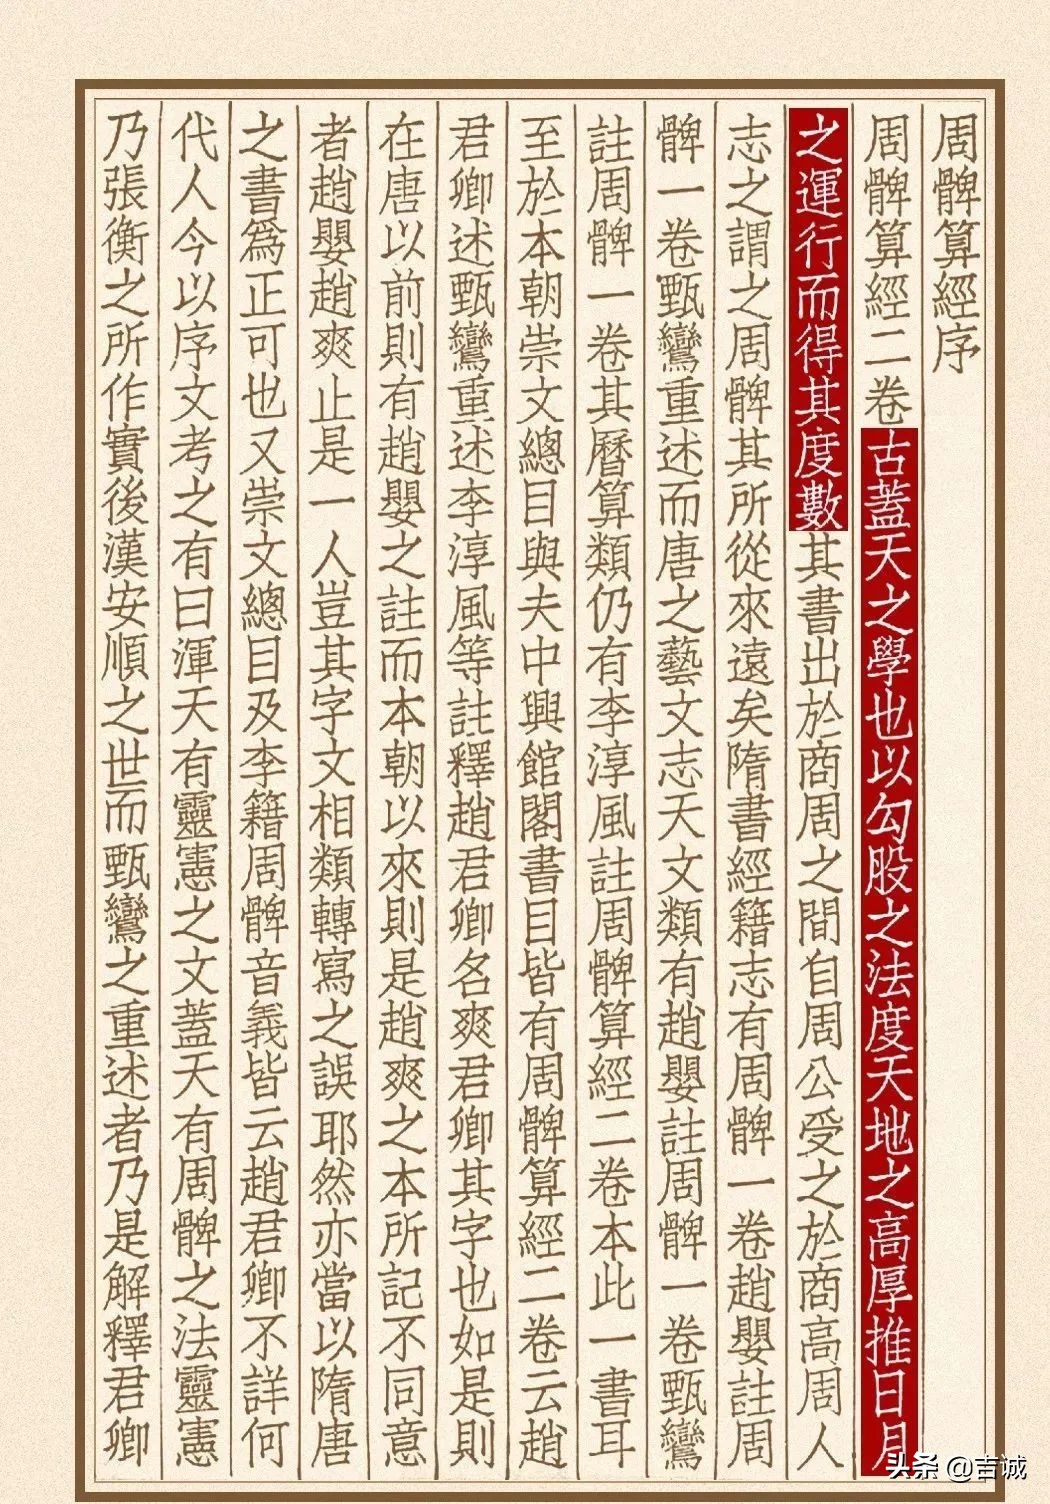 周髀算經序
周髀算經二卷古蓋天之學也以勾股之法度天地之高厚推日月
之運行而得其度數其書出於商周之間自周公受之於商高周人
志之謂之周髀其所從來遠矣隋書經籍志有周髀一卷趙嬰註周
髀一卷甄鸞重述而唐之藝文志天文類有趙嬰註周髀一卷甄鸞
註周髀一卷其曆算類仍有李淳風註周髀算經二卷本此一書耳
至於本朝崇文總目與夫中興館閣書目皆有周髀算經二卷云趙
君卿述甄鸞重述李淳風等註釋趙君卿名爽君卿其字也如是則
在唐以前則有趙嬰之註而本朝以來則是趙爽之本所記不同意
者趙嬰趙爽止是一人豈其字文相類轉寫之誤耶然亦當以隋唐
之書爲正可也又崇文總目及李籍周髀音義皆云趙君卿不詳何
代人今以序文考之有曰渾天有靈憲之文蓋天有周髀之法靈憲
乃張衡之所作實後漢安順之世而甄鸞之重述者乃是解釋君卿
头条 @吉诚